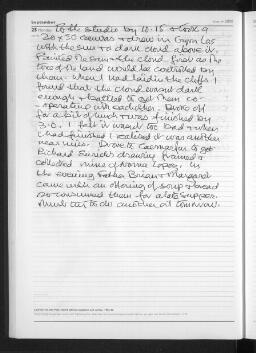 September
25
To the studio by 10.15 & took a
20 x 30 canvas & drew in Gyrn Las
with the sun & a dark cloud above it.
Painted the sun & the cloud first as the
tone of the land would be controlled by
them. When I had laid in the cliffs I
found that the cloud wasn't dark
enough & battled to get them co-
operating with each other. Broke off
for a bit of lunch & was finished by
3.0. I felt it wasn't too bad & when
I had finished I realised it was another
near miss. Drove to Caernarfon to get
Richard drawing framed &
collected mine of Norma Lopez. In
the evening Father Brian & Margaret
came with an offering of soup & bread
so consumed them for a late supper.
Must try to do another at tomorrow.